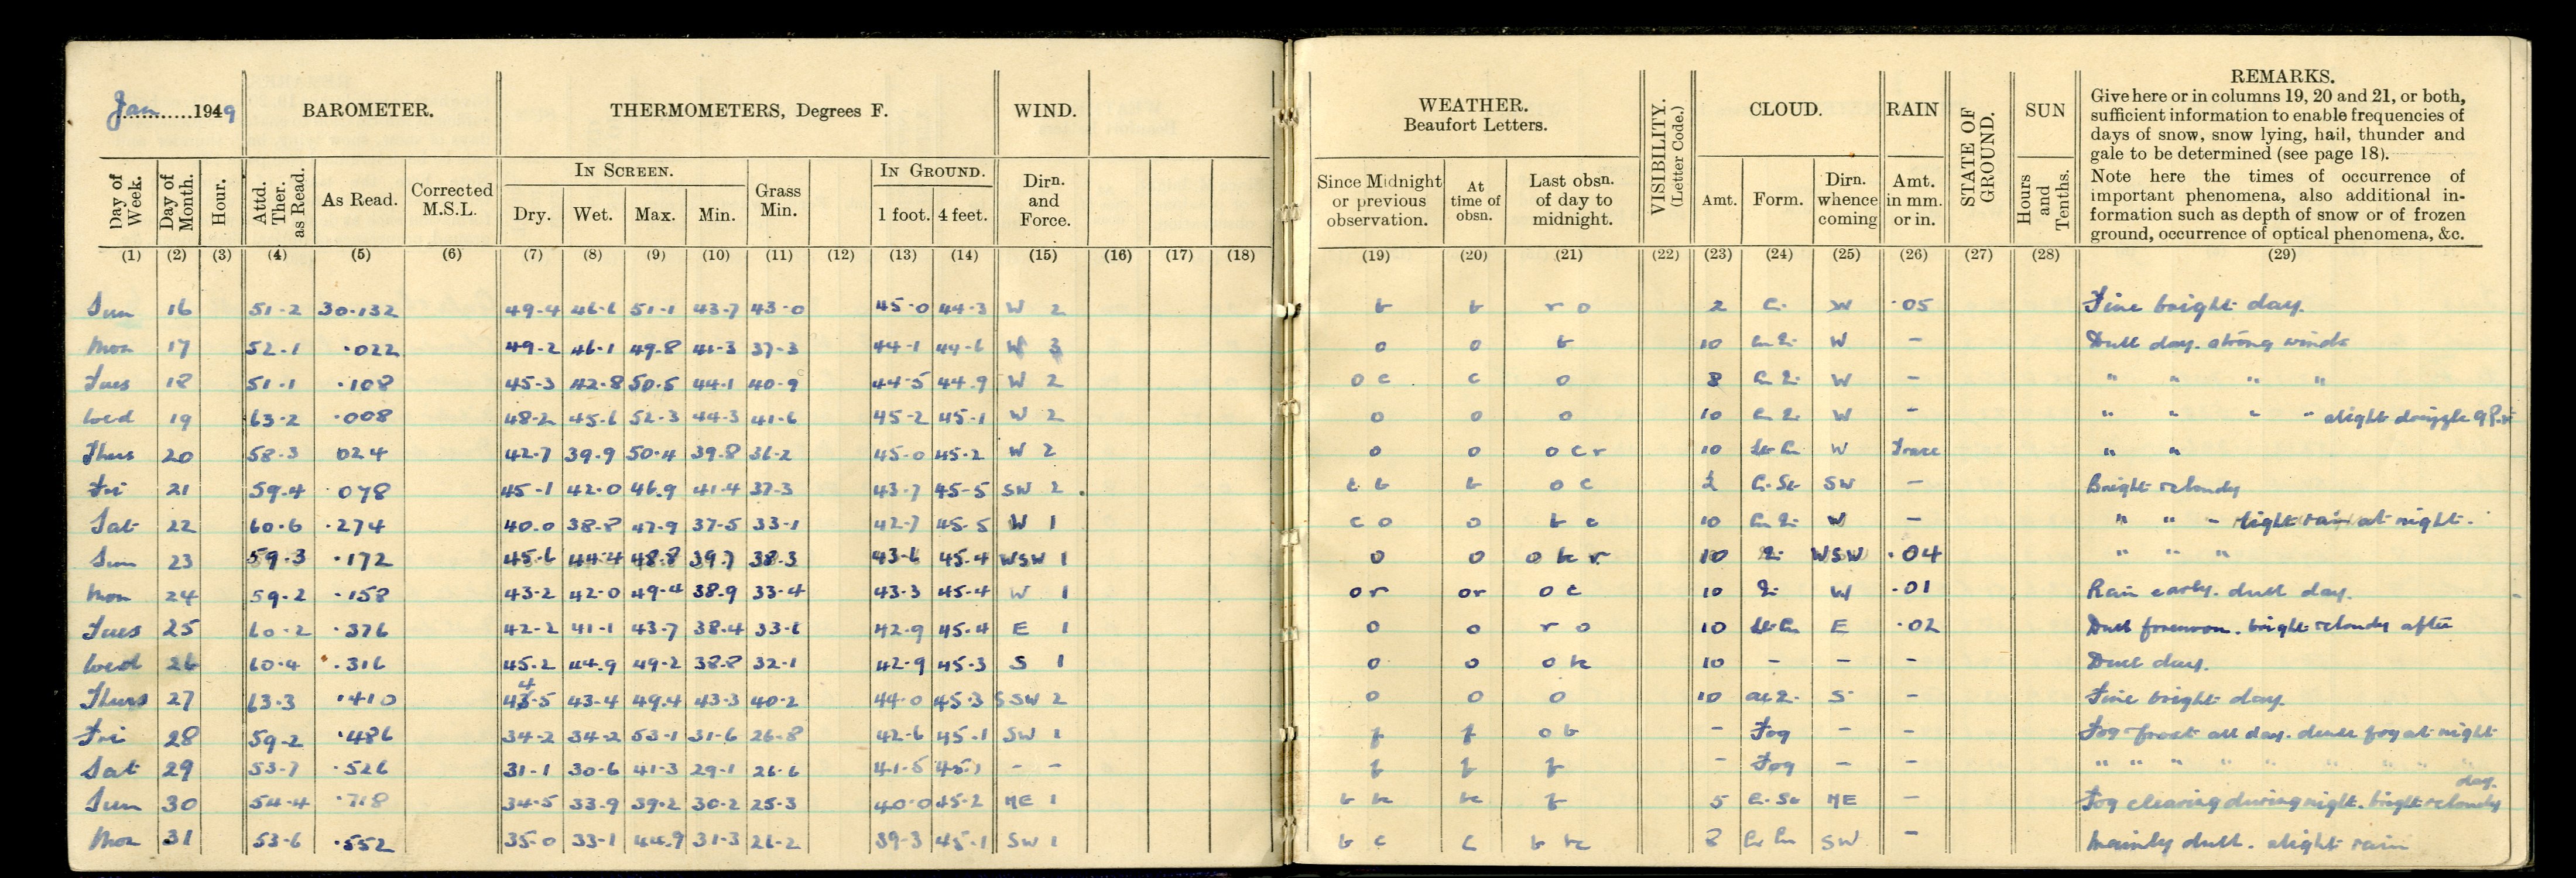 Jan 1949 BAROMETER. THERMOMETERS, Degrees F. WIND. WEATHER. Beaufort Letters. VISIBILITY. (Letter Code.) CLOUD. RAIN STATE OF GROUND. SUN REMARKS.
Give here or in columns 19, 20 and 21, or both,
sufficient information to enable frequencies of
days of snow, snow lying, hail, thunder and
gale to be determined (see page 18).
Note here the times of occurrence of
important phenomena, also additional in-
formation such as depth of snow or of frozen
ground, occurrence of optical phenomena, &c.
Day of Week. Day of Month. Hour. Attd. Ther. as Read. As Read. Corrected M.S.L. IN SCREEN. Dry. Wet. Max. Min. Grass Min. IN GROUND. 1 foot. 4 feet. Dirn. and Force. Since Midnight or previous observation. At time of obsn. Last obsn. of day to midnight. Amt. Form. Dirn. whence coming Amt. in mm. or in. Hours and Tenths.
(1) (2) (3) (4) (5) (6) (7) (8) (9) (10) (11) (12) (13) (14) (15) (16) (17) (18) (19) (20) (21) (22) (23) (24) (25) (26) (27) (28) (29)
Sun 16 51.2 30.132 49.4 46.6 51.1 43.7 43.0 45.0 44.3 W 2 b b r o 2 W .05 Fine bright day.
Mon 17 52.1 .022 49.2 46.1 49.8 41.3 37.3 44.1 44.6 W 3 o o b 10 W - Dull day. strong winds
Tues 18 51.1 .108 45.3 42.8 50.5 44.1 40.9 44.5 44.9 W 2 o c c o 8 W - " " " "
Wed 19 63.2 .008 48.2 45.6 52.3 44.3 41.6 45.2 45.1 W 2 o o o 10 W - " " " " slight drizzle 9 P.m
Thurs 20 58.3 024 42.7 39.9 50.4 39.8 36.2 45.0 45.2 W 2 o o o c r 10 W Trace " "
Fri 21 59.4 .078 45.1 42.0 46.9 41.4 37.3 43.7 45.5 SW 2 b o c SW - Bright & cloudy
Sat 22 60.6 .274 40.0 38.8 47.9 37.5 33.1 42.7 45.5 W 1 c o o b c 10 W - " " - light rain at night.
Sun 23 59.3 .172 45.6 44.4 48.8 39.7 38.3 43.6 45.4 WSW 1 o o o r 10 WSW .04 " " "
Mon 24 59.2 .158 43.2 42.0 49.4 38.9 33.4 43.3 45.4 W 1 o r or o c 10 W .01 Rain early. dull day.
Tues 25 60.2 .376 42.2 41.1 43.7 38.4 33.6 42.9 45.4 E 1 o o r o 10 E .02 Dull forenoon. bright & cloudy after
Wed 26 60.4 .316 45.2 44.9 49.2 38.8 32.1 42.9 45.3 S 1 o o o 10 - - - Dull day.
Thurs 27 63.3 .410 44.5 43.4 49.4 43.3 40.2 44.0 45.3 SSW 2 o o o 10 S - Fine bright day.
Fri 28 59.2 .486 34.2 34.2 53.1 31.6 26.8 42.6 45.1 SW 1 f f o b - Fog - - Fog & frost all day. dense fog at night
Sat 29 53.7 .526 31.1 30.6 41.3 29.1 26.6 41.5 45.1 - - f f f - Fog - - " " " " " " " "
Sun 30 54.4 .718 34.5 33.9 39.2 30.2 25.3 40.0 45.2 NE 1 f 5 NE - Fog clearing during night. bright & cloudy day.
Mon 31 53.6 .552 35.0 33.1 44.9 31.3 26.2 39.3 45.1 SW 1 b c c 8 SW - Mainly dull. slight rain